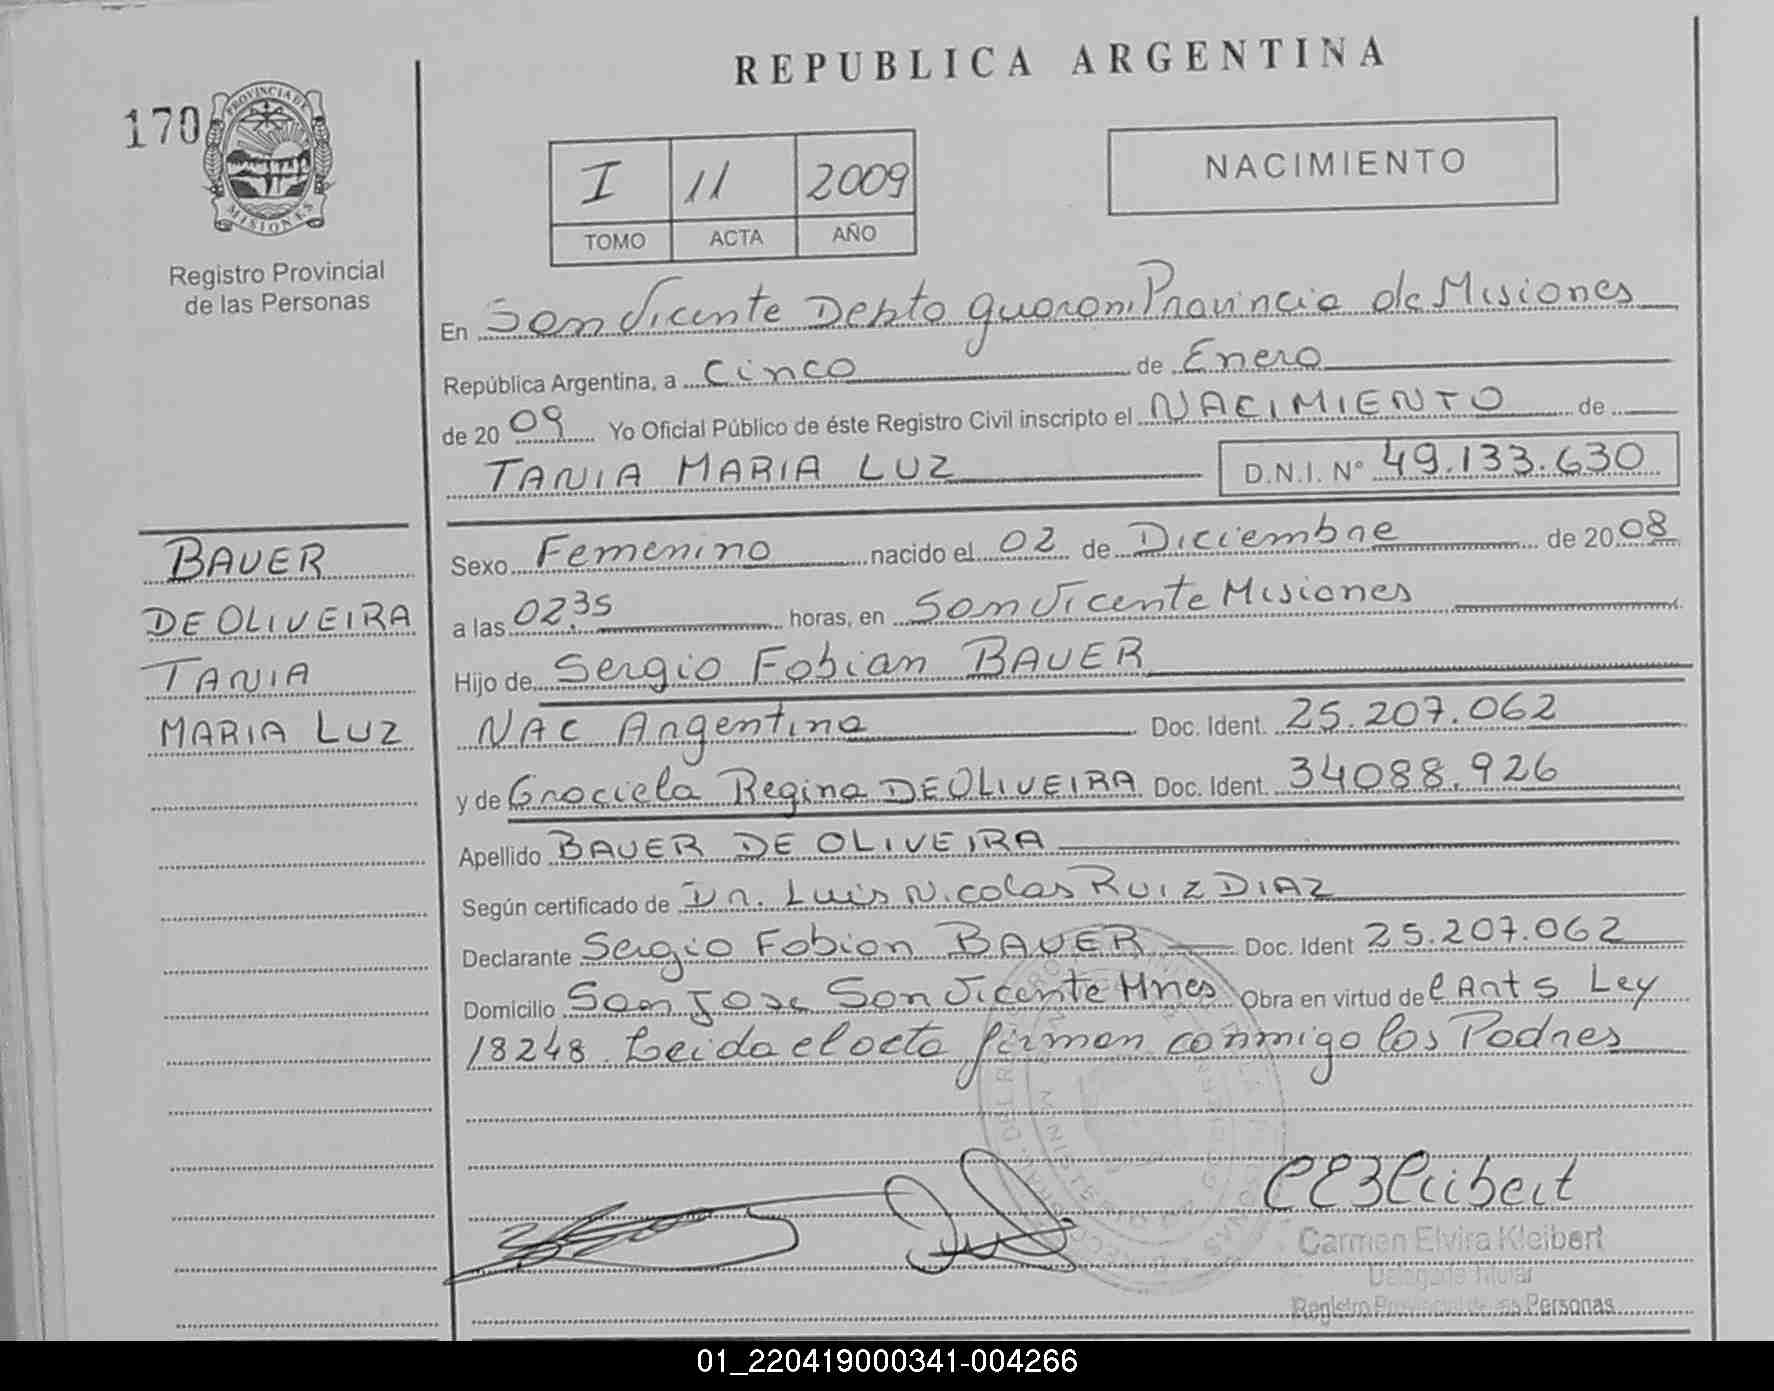 REPUBLICA ARGENTINA
170
PROVINCIA DE
MISIONES
Registro Provincial
de las Personas
I 11 2009
TOMO ACTA AÑO
NACIMIENTO
En San Vicente Depto Guarani Provincia de Misiones
República Argentina, a Cinco de Enero
de 2009 Yo Oficial Público de éste Registro Civil inscripto el NACIMIENTO de
TANIA MARIA LUZ D.N.I. N° 49.133.630
BAUER
DE OLIVEIRA
TANIA
MARIA LUZ
Sexo Femenino nacido el 02 de Diciembre de 2008
a las 02.35 horas, en San Vicente Misiones
Hijo de Sergio Fabian BAUER
NAC Argentina Doc. Ident. 25.207.062
y de Graciela Regina DE OLIVEIRA Doc. Ident. 34088.926
Apellido BAUER DE OLIVEIRA
Según certificado de Dr. Luis Nicolas RUIZ DIAZ
Declarante Sergio Fabian BAUER Doc. Ident 25.207.062
Domicilio San Jose San Vicente Mnes Obra en virtud del Art 5 Ley
18248. Leida el acta firman conmigo los Padres
Carmen Elvira Kleibert
Delegada Titular
Registro Provincial de las Personas
01_220419000341-004266